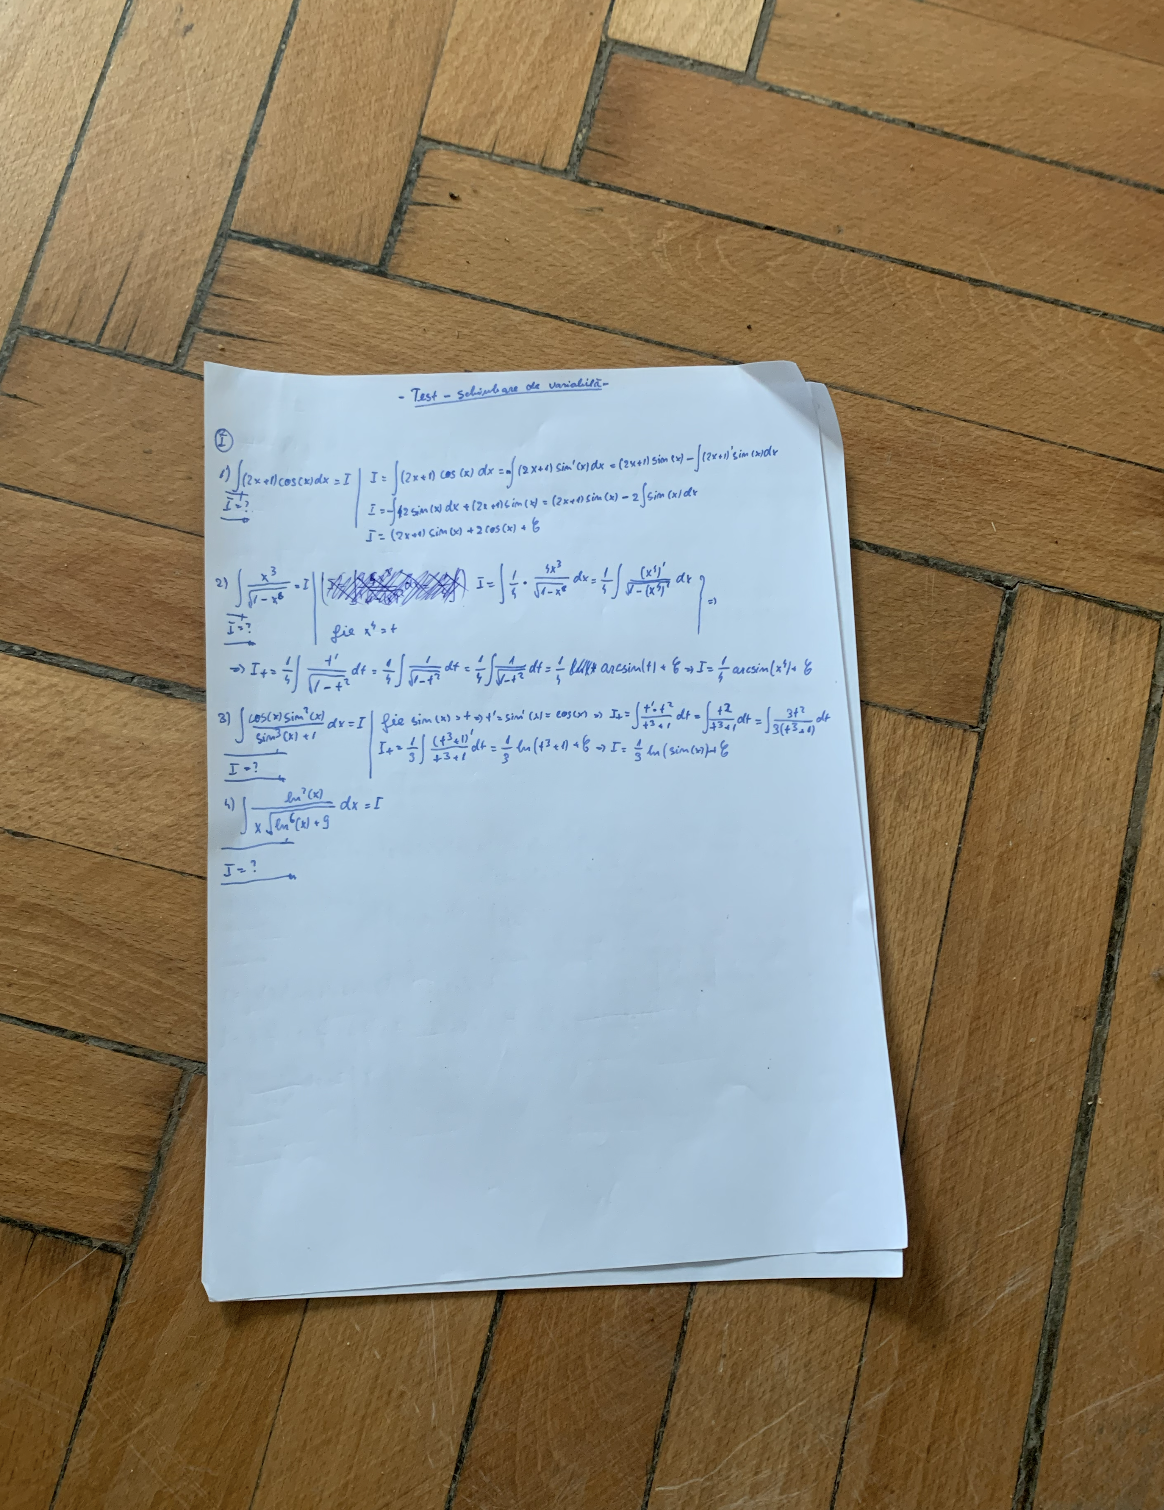 - Test - schimbare de variabilă -
I
1) ∫(2x+1)cos(x)dx = I | I = ∫(2x+1) cos(x) dx = ∫(2x+1) sin'(x)dx = (2x+1) sin(x) - ∫(2x+1)'sin(x)dx
I=? I = -∫2 sin(x) dx + (2x+1) sin(x) = (2x+1) sin(x) - 2∫sin(x)dx
I = (2x+1) sin(x) + 2cos(x) + C
2) ∫ x³/√(1-x⁸) = I | I = ∫ 1/4 · 4x³/√(1-x⁸) dx = 1/4 ∫ (x⁴)'/√(1-(x⁴)²) dx ⇒
I=? fie x⁴ = t
⇒ I_t = 1/4 ∫ t'/√(1-t²) dt = 1/4 ∫ 1/√(1-t²) dt = 1/4 ∫ 1/√(1-t²) dt = 1/4 arcsin(t) + C ⇒ I = 1/4 arcsin(x⁴) + C
3) ∫ cos(x) sin²(x)/(sin³(x)+1) dx = I | fie sin(x) = t ⇒ t' = sin'(x) = cos(x) ⇒ I_t = ∫ t'·t²/(t³+1) dt = ∫ t2/(t³+1) dt = ∫ 3t²/3(t³+1) dt
I=? I_t = 1/3 ∫ (t³+1)'/(t³+1) dt = 1/3 ln(t³+1) + C ⇒ I = 1/3 ln(sin(x)) + C
4) ∫ ln²(x)/(x√(ln⁶(x)+9)) dx = I
I=?